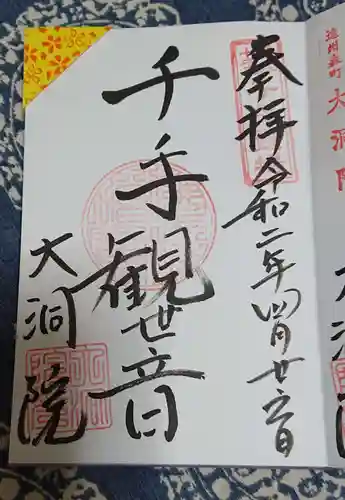 遠州森町 大洞院
奉拝 令和二年四月廿六日
千手観世音
大洞院